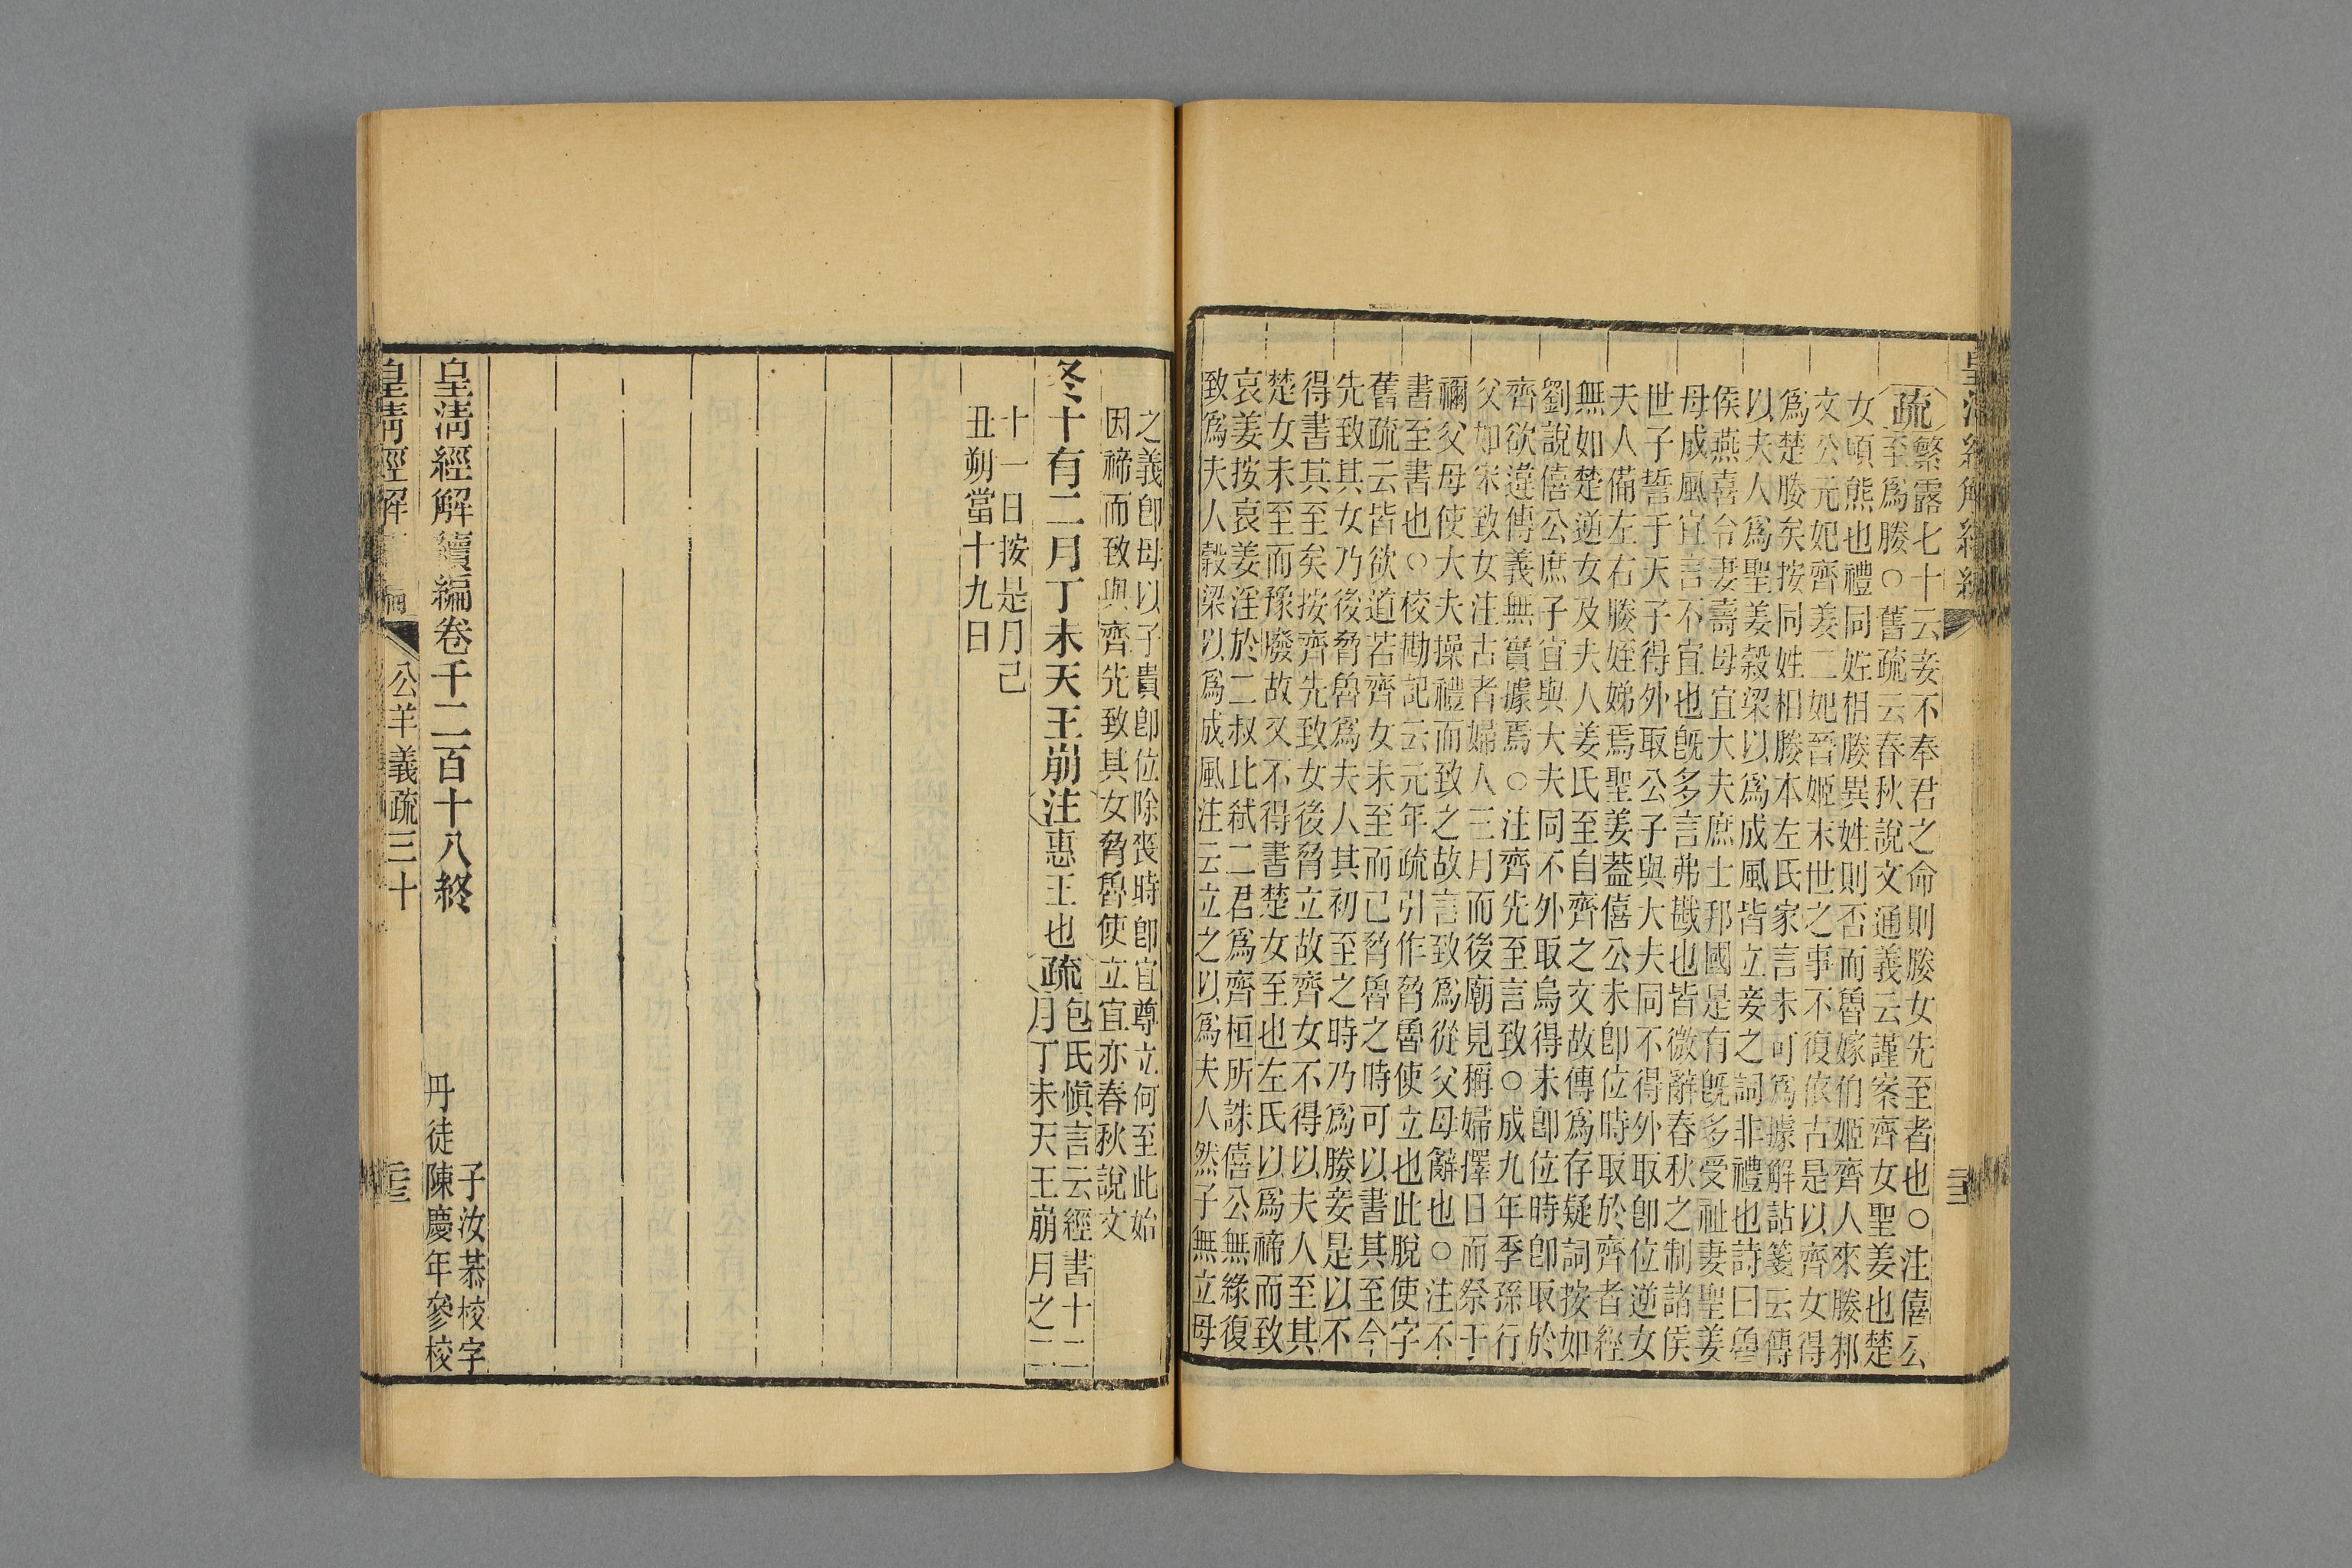 皇淸經解續編
疏
繁露七十云妾不奉君之命則媵女先至者也○注僖公
至爲媵○舊疏云春秋說文通義云謹案齊女聖姜也楚
女頃熊也禮同姓相媵異姓則否而魯嫁伯姬齊人來媵邾
文公元妃齊姜二妃晉姬末世之事不復依古是以齊女得
爲楚媵矣按同姓相媵本左氏家言未可爲據解詁箋云傳
以夫人爲聖姜榖梁以爲成風皆立妾之詞非禮也詩曰魯
侯燕喜令妻壽母宜大夫庶士邦國是有旣多受祉妻聖姜
母成風宜言不宜也旣多言弗戩也皆微辭春秋之制諸侯
世子誓于天子得外取公子與大夫同不得外取卽位逆女
夫人備左右媵姪娣焉聖姜蓋僖公未卽位時取於齊者經
無如楚逆女及夫人姜氏至自齊之文故傳爲存疑詞按如
劉說僖公庶子宜與大夫同不外取烏得未卽位時卽取於
齊欲違傳義無實據焉○注齊先至言致○成九年季孫行
父如宋致女注古者婦人三月而後廟見稱婦擇日而祭于
禰父母使大夫操禮而致之故言致爲從父母辭也○注不
書至書也○校勘記云元年疏引作脅魯使立也此脫使字
舊疏云皆欲道若齊女未至而已脅魯之時可以書其至今
先致其女乃後脅魯爲夫人其初至之時乃爲媵妾是以不
得書其至矣按齊先致女後脅立故齊女不得以夫人至其
楚女未至而豫廢故又不得書楚女至也左氏以爲禘而致
哀姜按哀姜淫於二叔比弒二君爲齊桓所誅僖公無緣復
致爲夫人榖梁以爲成風注云立之以爲夫人然子無立母
之義卽母以子貴卽位除喪時卽宜尊立何至此始
因禘而致與齊先致其女脅魯使立宜亦春秋說文
冬十有二月丁未天王崩注惠王也疏
包氏愼言云經書十二
月丁未天王崩月之二
十一日按是月己
丑朔當十九日
皇淸經解續編卷千二百十八終
子汝恭校字
丹徒陳慶年參校
皇淸經解
公羊義疏三十